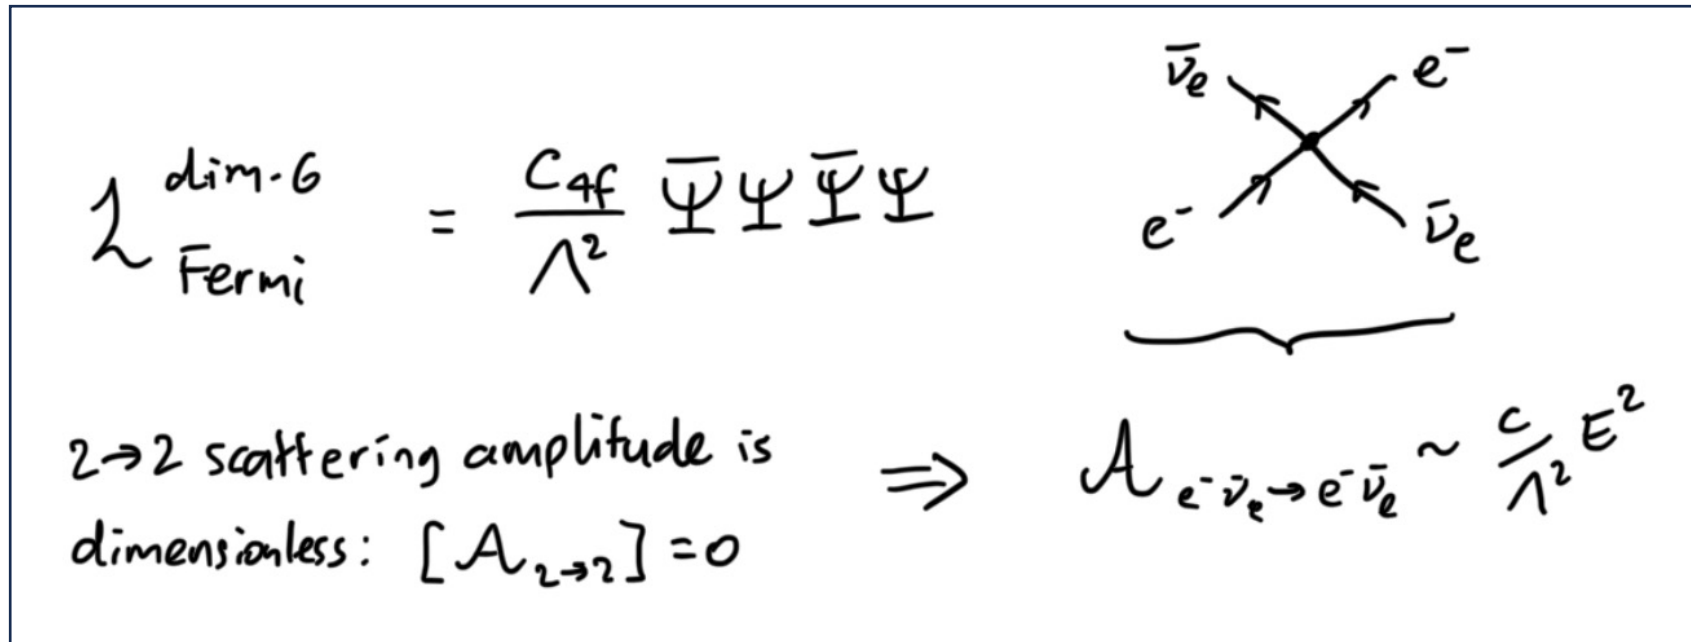 ℒ_Fermi^dim-6 = C_4f/Λ² Ψ̄ Ψ Ψ̄ Ψ
ν̄_e e⁻
e⁻ ν̄_e
2→2 scattering amplitude is
dimensionless: [𝒜_2→2] = 0
⇒ 𝒜_e⁻ν̄_e→e⁻ν̄_e ~ c/Λ² E²